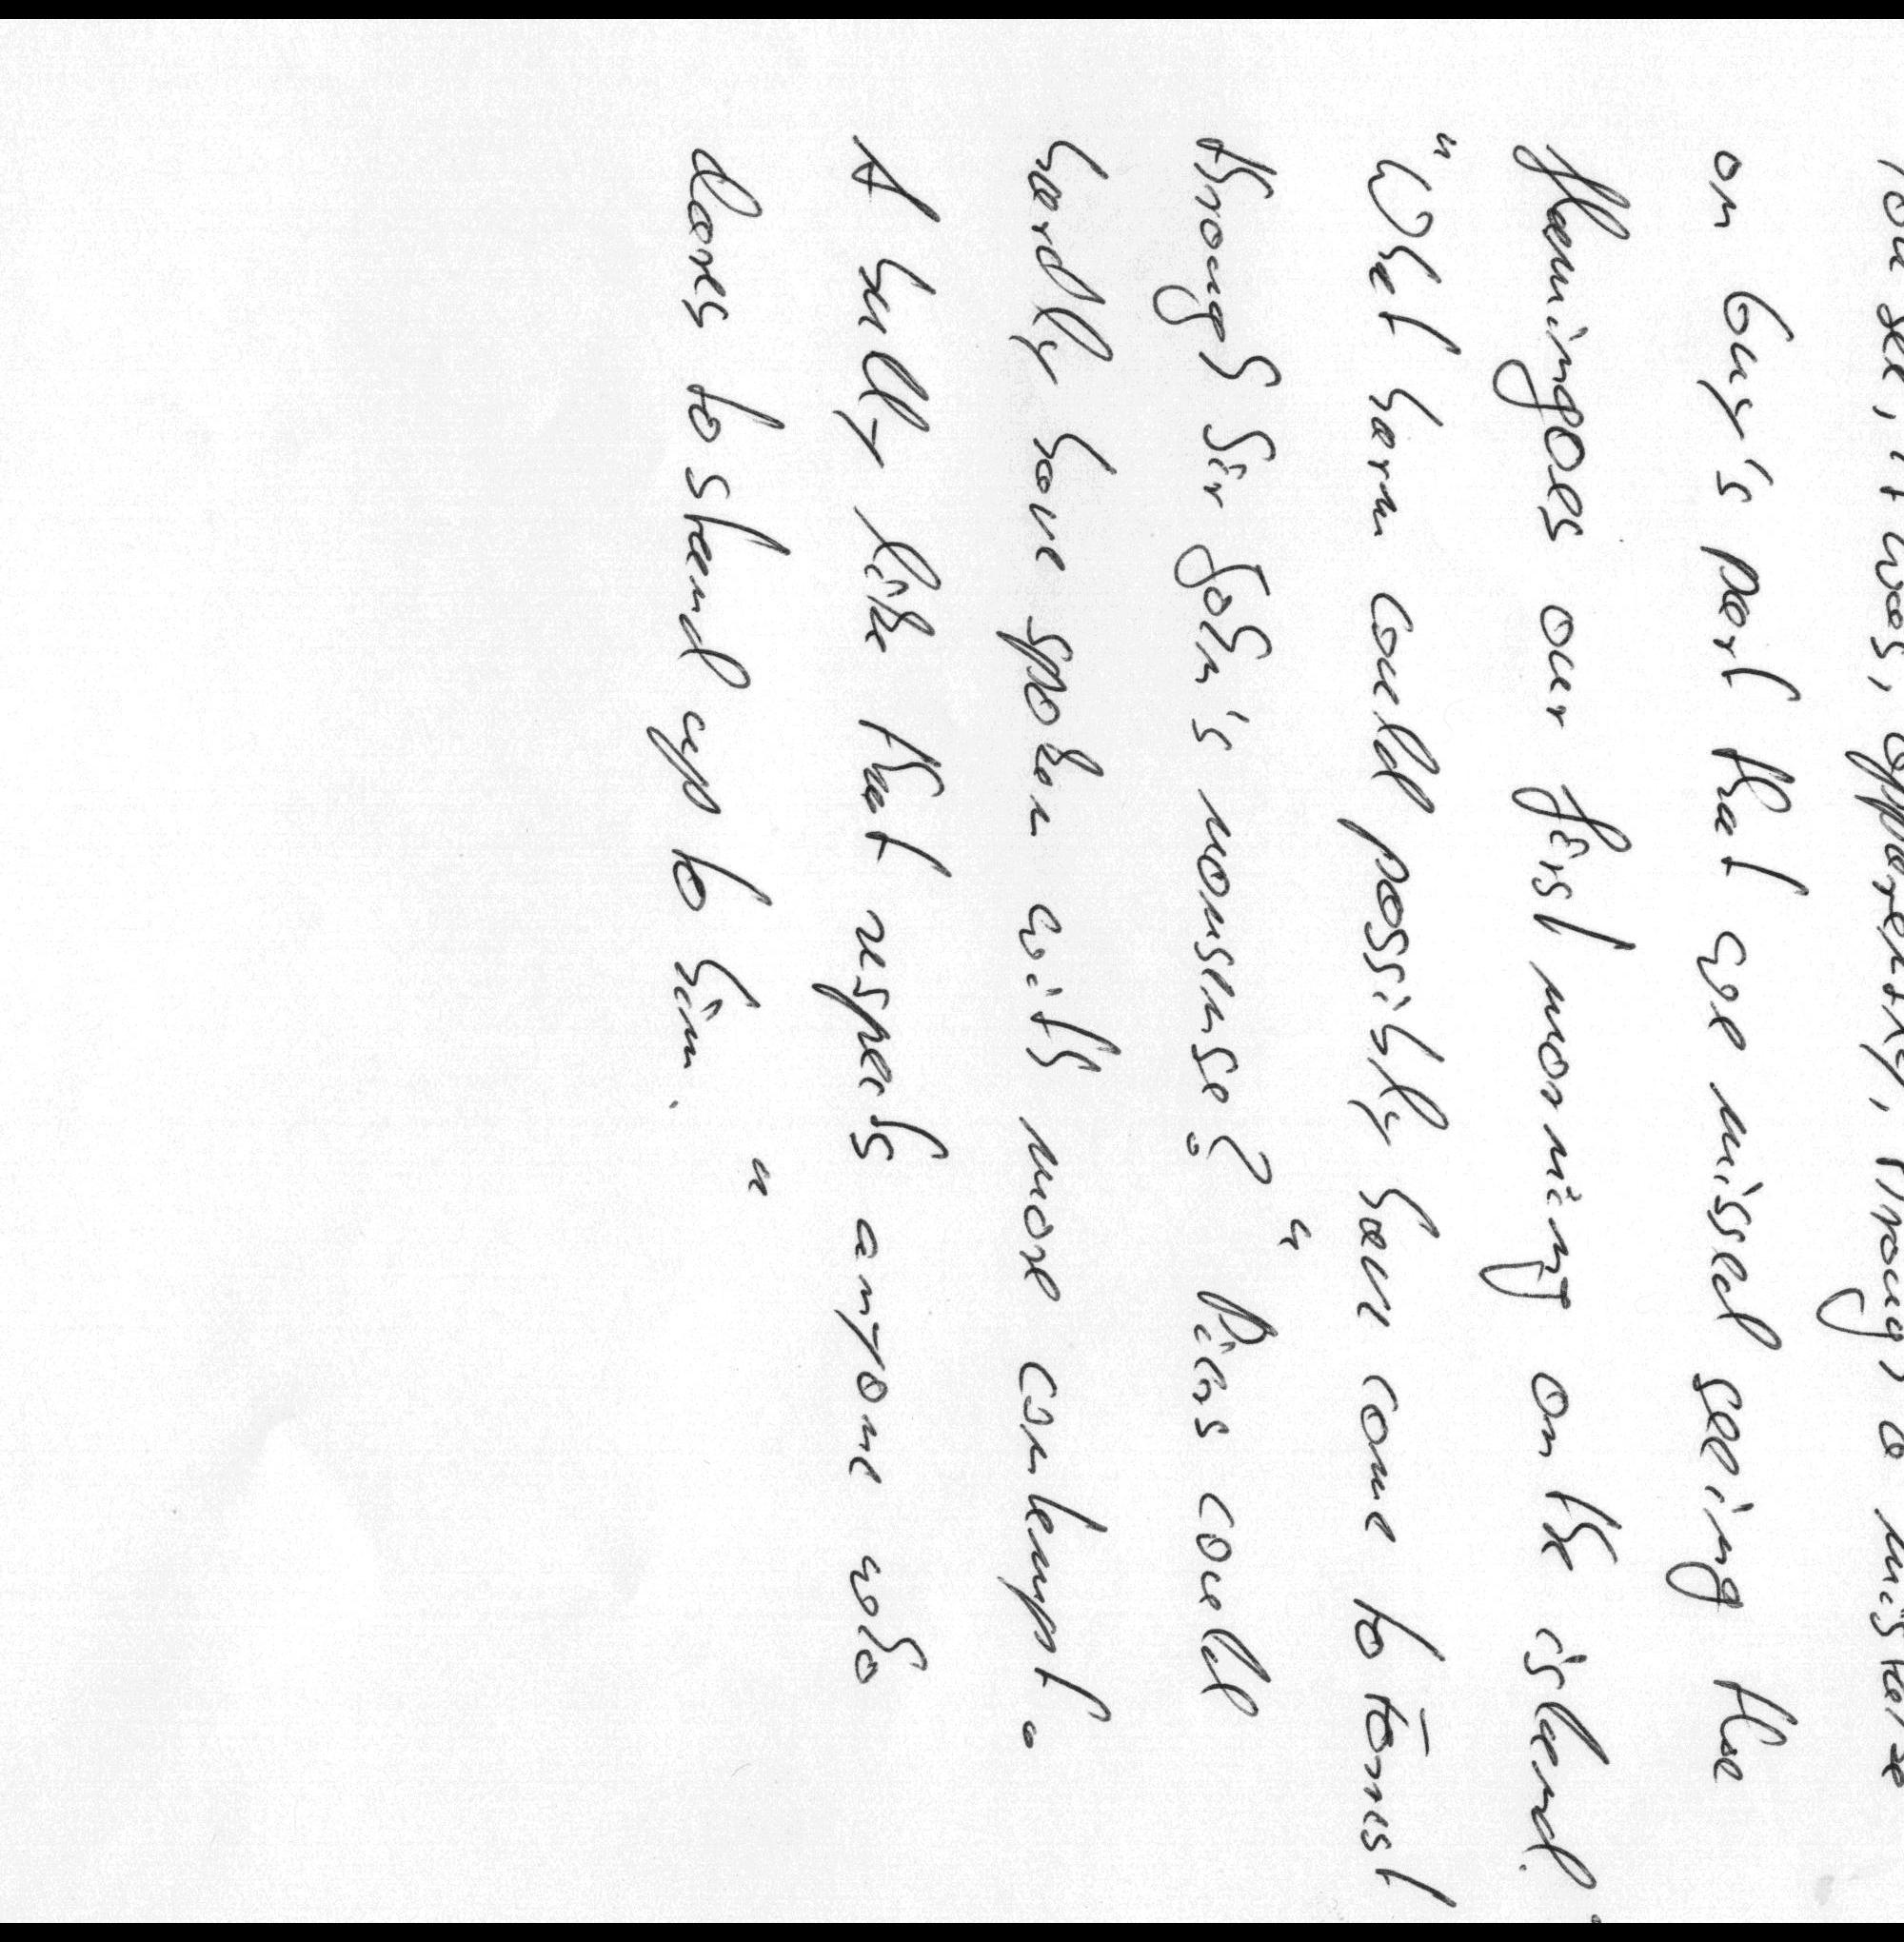 You see, it was, apparently, through a mistake
on Guy's part that we missed seeing the
flamingoes our fist morning on the island."
"What harm could possibly have come to Ernest
through Sir John's nonsense?" Pius could
hardly have spoken with more contempt.
"A bully like that respects anyone who
dares to stand up to him."